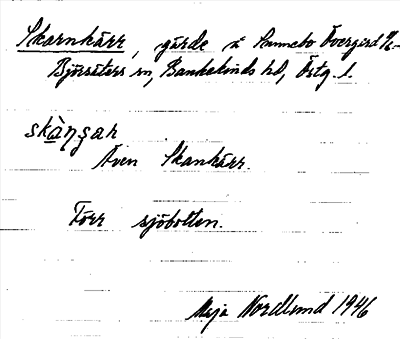 Skarnkärr, gärde å Sunnebo Övergård
Björsäters sn, Bankekinds hd, Östg. l.
skàŋgar
Även Skankärr.
Förr sjöbotten.
Maja Nordlund 1946